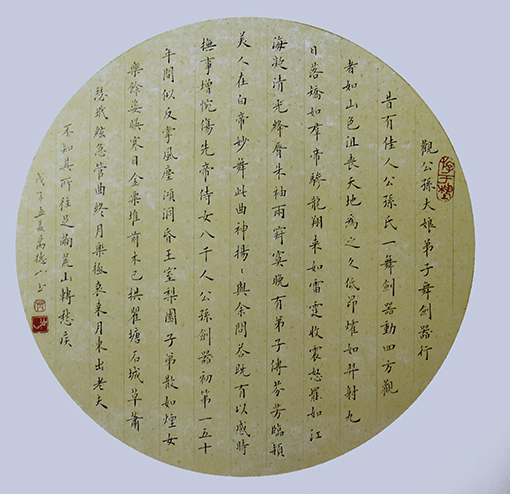 觀公孫大娘弟子舞劍器行
昔有佳人公孫氏一舞劍器動四方觀
者如山色沮喪天地為之久低昂㸌如羿射九
日落矯如羣帝驂龍翔来如雷霆收震怒罷如江
海凝清光絳唇朱袖兩寂寞晚有弟子傳芬芳臨潁
美人在白帝妙舞此曲神揚〻與余問答既有以感時
撫事增惋傷先帝侍女八千人公孫劍器初第一五十
年間似反掌風塵澒洞昏王室梨園子弟散如煙女
樂餘姿映寒日金粟堆前木已拱瞿塘石城草蕭
瑟玳絃急管曲終月樂極哀来月東出老夫
不知其所往足繭荒山轉愁疾
戊子孟夏